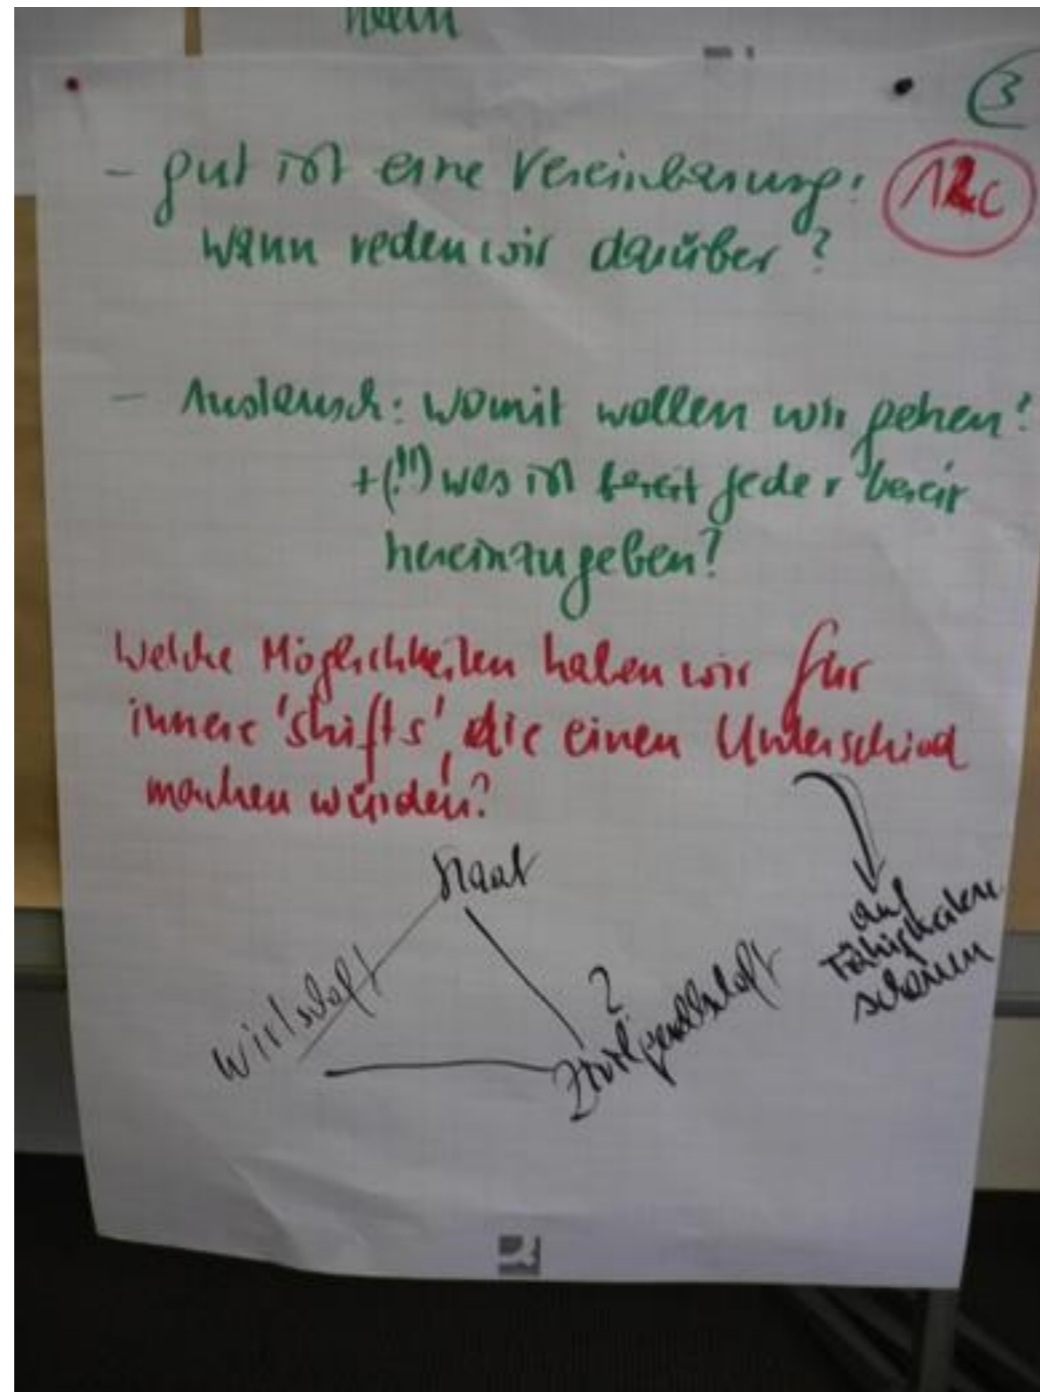 nein
3
- gut ist eine Vereinbarung: 12c
wann reden wir darüber?
- Austausch: womit wollen wir gehen?
+(!!) was ist bereit jeder bereit
hereinzugeben?
Welche Möglichkeiten haben wir für
innere 'shifts', die einen Unterschied
machen würden?
Staat
auf
Fähigkeiten
schauen
?
Wirtschaft
Zivilgesellschaft